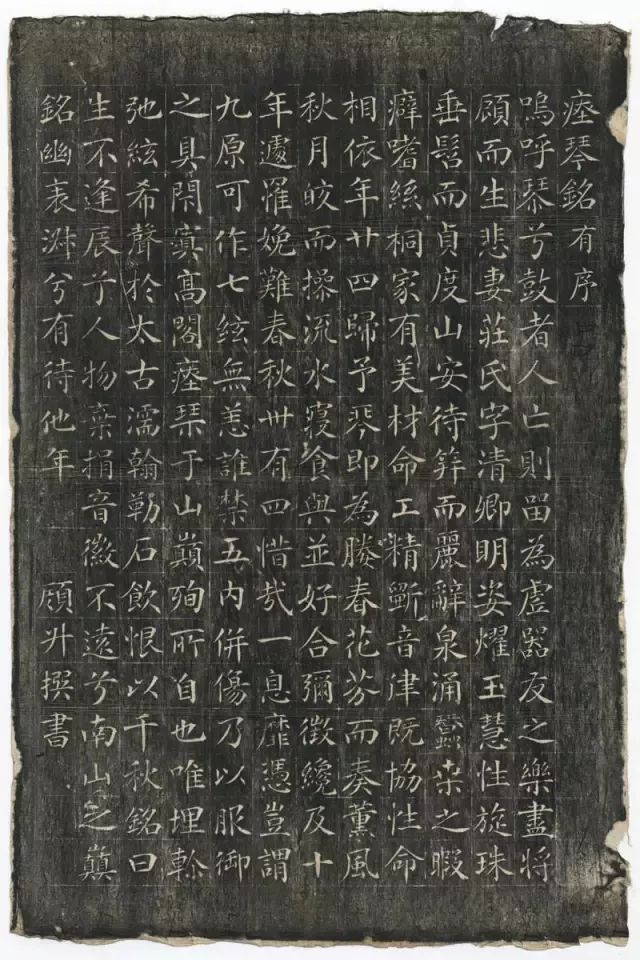 瘞琴銘有序
嗚呼琹兮鼓者人亡則畱為虗噐友之樂盡將
顧而生悲妻莊氏字清卿明姿燿玉慧性旋珠
垂髫而貞度山安待筓而麗辭泉涌蠶桒之暇
癖嗜絲桐家有美材命工精斵音律既協性命
相依年廿四歸予琴即為媵春花芬而奏薰風
秋月皎而操流水寢食與並好合彌徵纔及十
年遽罹娩難春秋卅有四惜哉一息靡憑豈謂
九原可作七絃無恙誰禁五內併傷乃以服御
之具閟寘高閣瘞琹于山巔殉所自也唯埋軫
弛絃希聲於太古濡翰勒石飲恨以千秋銘曰
生不逢辰兮人物棄捐音徽不遠兮南山之巔
銘幽表淑兮有待他年 顧升撰書